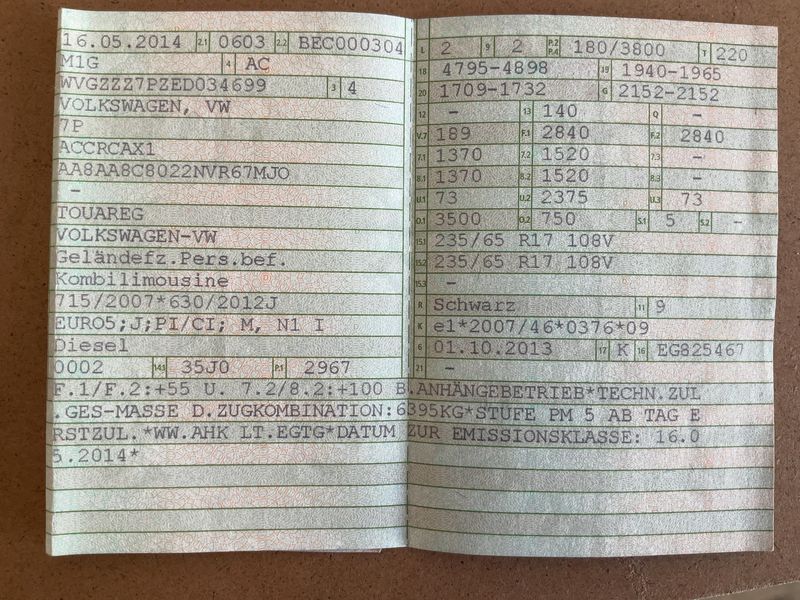 16.05.2014 2.1 0603 2.2 BEC000304
M1G 4 AC
WVGZZZ7PZED034699 3 4
VOLKSWAGEN, VW
7P
ACCRCAX1
AA8AA8C8022NVR67MJO
-
TOUAREG
VOLKSWAGEN-VW
Geländefz.Pers.bef.
Kombilimousine
715/2007*630/2012J
EURO5;J;PI/CI; M, N1 I
Diesel
0002 14.1 35J0 P.1 2967
L 2 9 2 P.2 P.4 180/3800 T 220
18 4795-4898 19 1940-1965
20 1709-1732 G 2152-2152
12 - 13 140 Q -
V.7 189 F.1 2840 F.2 2840
7.1 1370 7.2 1520 7.3 -
8.1 1370 8.2 1520 8.3 -
U.1 73 U.2 2375 U.3 73
O.1 3500 O.2 750 S.1 5 S.2 -
15.1 235/65 R17 108V
15.2 235/65 R17 108V
15.3 -
R Schwarz 11 9
K e1*2007/46*0376*09
6 01.10.2013 17 K 16 EG825467
21 -
F.1/F.2:+55 U. 7.2/8.2:+100 B.ANHÄNGEBETRIEB*TECHN.ZUL
.GES-MASSE D.ZUGKOMBINATION:6395KG*STUFE PM 5 AB TAG E
RSTZUL.*WW.AHK LT.EGTG*DATUM ZUR EMISSIONSKLASSE: 16.0
5.2014*